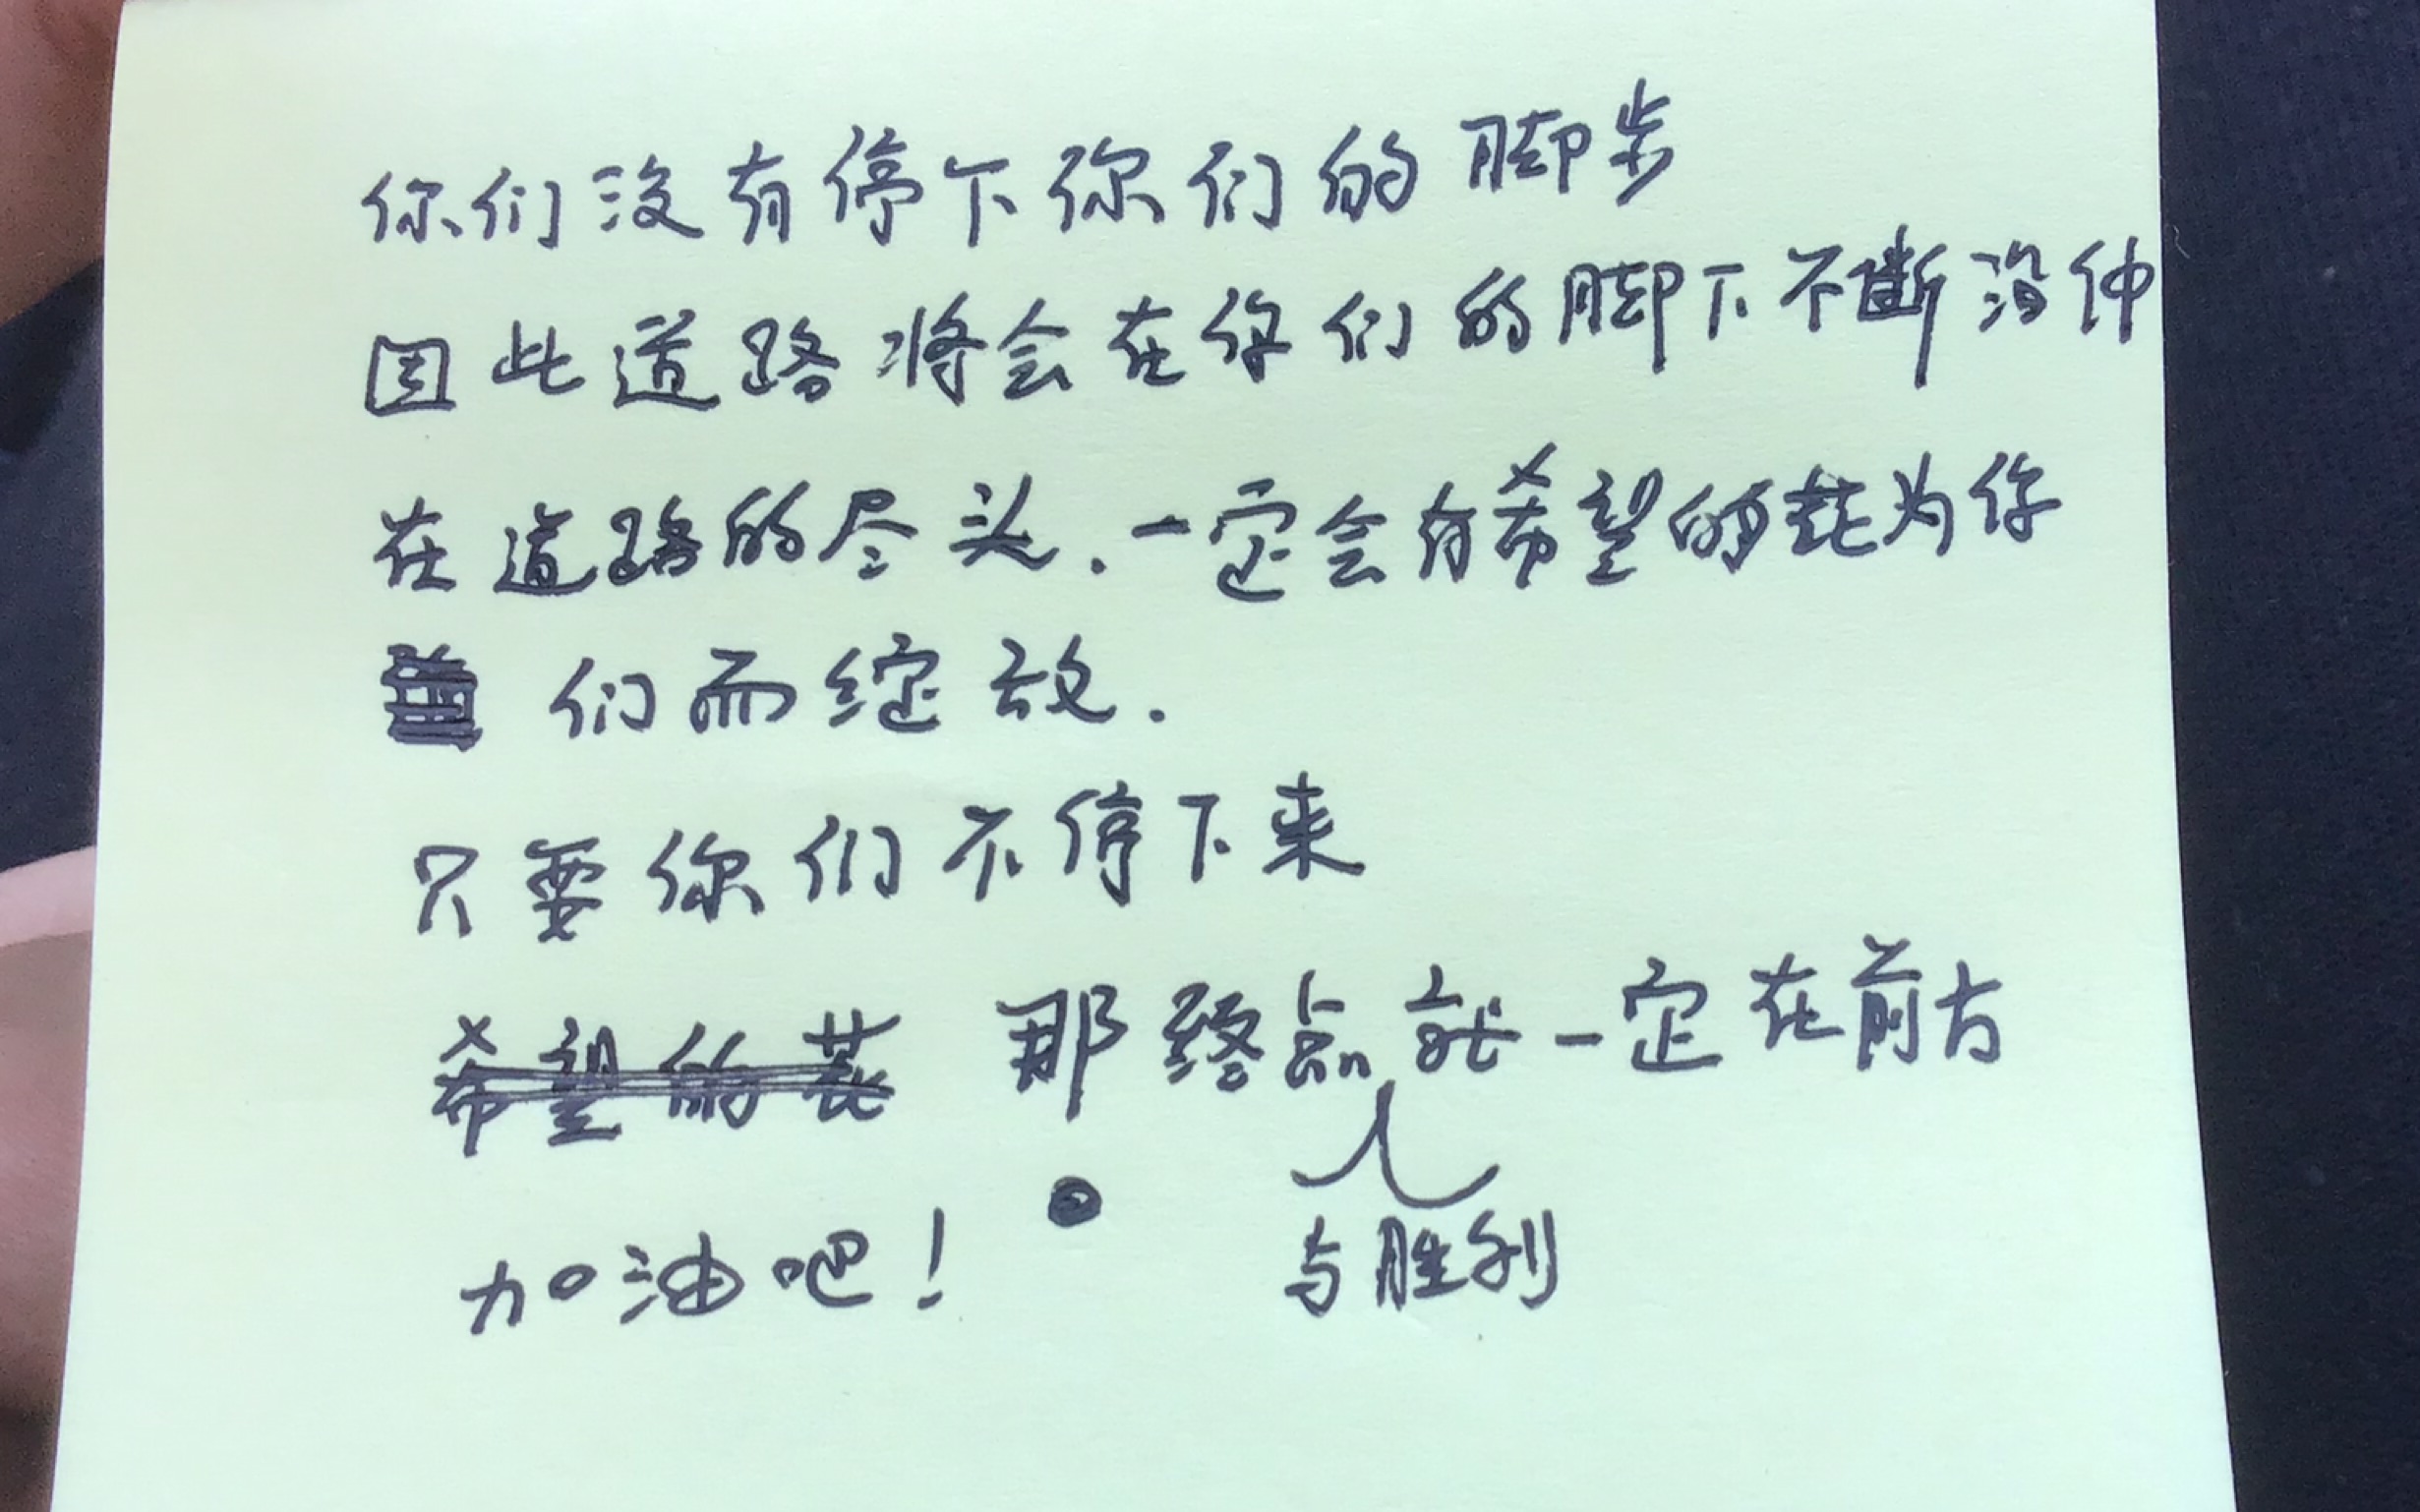 你们没有停下你们的脚步
因此道路将会在你们的脚下不断沿伸
在道路的尽头.一定会有希望的花为你
们而绽放.
只要你们不停下来
希望的花 那终点就一定在前方
与胜利
加油吧!